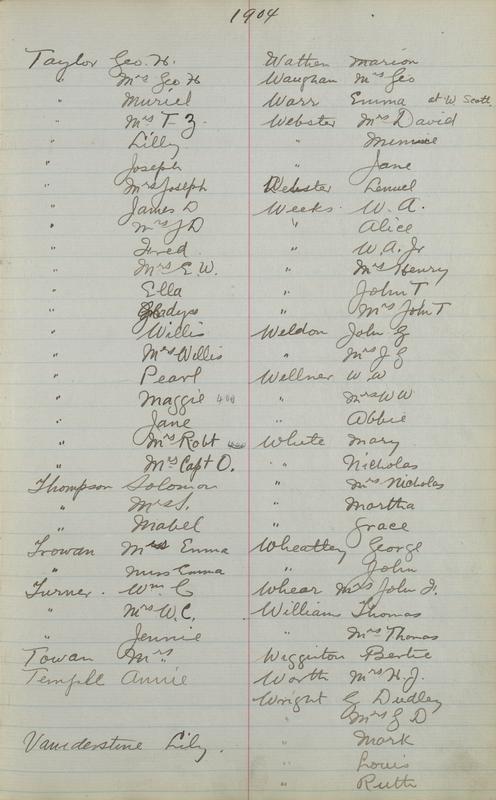 1904
Taylor Geo. H.
" Mrs Geo H
" Muriel
" Mrs T. Z.
" Lilly
" Joseph
" Mrs Joseph
" James D
" Mrs J D
" Fred
" Mrs E. W.
" Ella
" Gladys
" Willis
" Mrs Willis
" Pearl
" Maggie
" Jane
" Mrs Robt
" Mrs Capt O.
Thompson Solomon
" Mrs S.
" Mabel
Trowan Mrs Emma
" Miss Emma
Turner. Wm C
" Mrs W.C.
" Jennie
Towan Mrs "
Temple Annie
Vanderstine Lily.
Wathen Marion
Waughan Mrs Geo
Warr Emma at W Scott
Webster Mrs David
" Minnie
" Jane
Webster Lemuel
Weeks W. A.
" Alice
" W. A. Jr
" Mrs Henry
" John T
" Mrs John T
Weldon John G
" Mrs J G
Wellner W W
" Mrs W W
" Abbie
White Mary
" Nicholas
" Mrs Nicholas
" Martha
" Grace
Wheatley George
" John
Whear Mrs John F.
William Thomas
" Mrs Thomas
Wigginton Bertie
Worth Mrs H. J.
Wright G Dudley
" Mrs G D
" Mark
" Louis
" Ruth